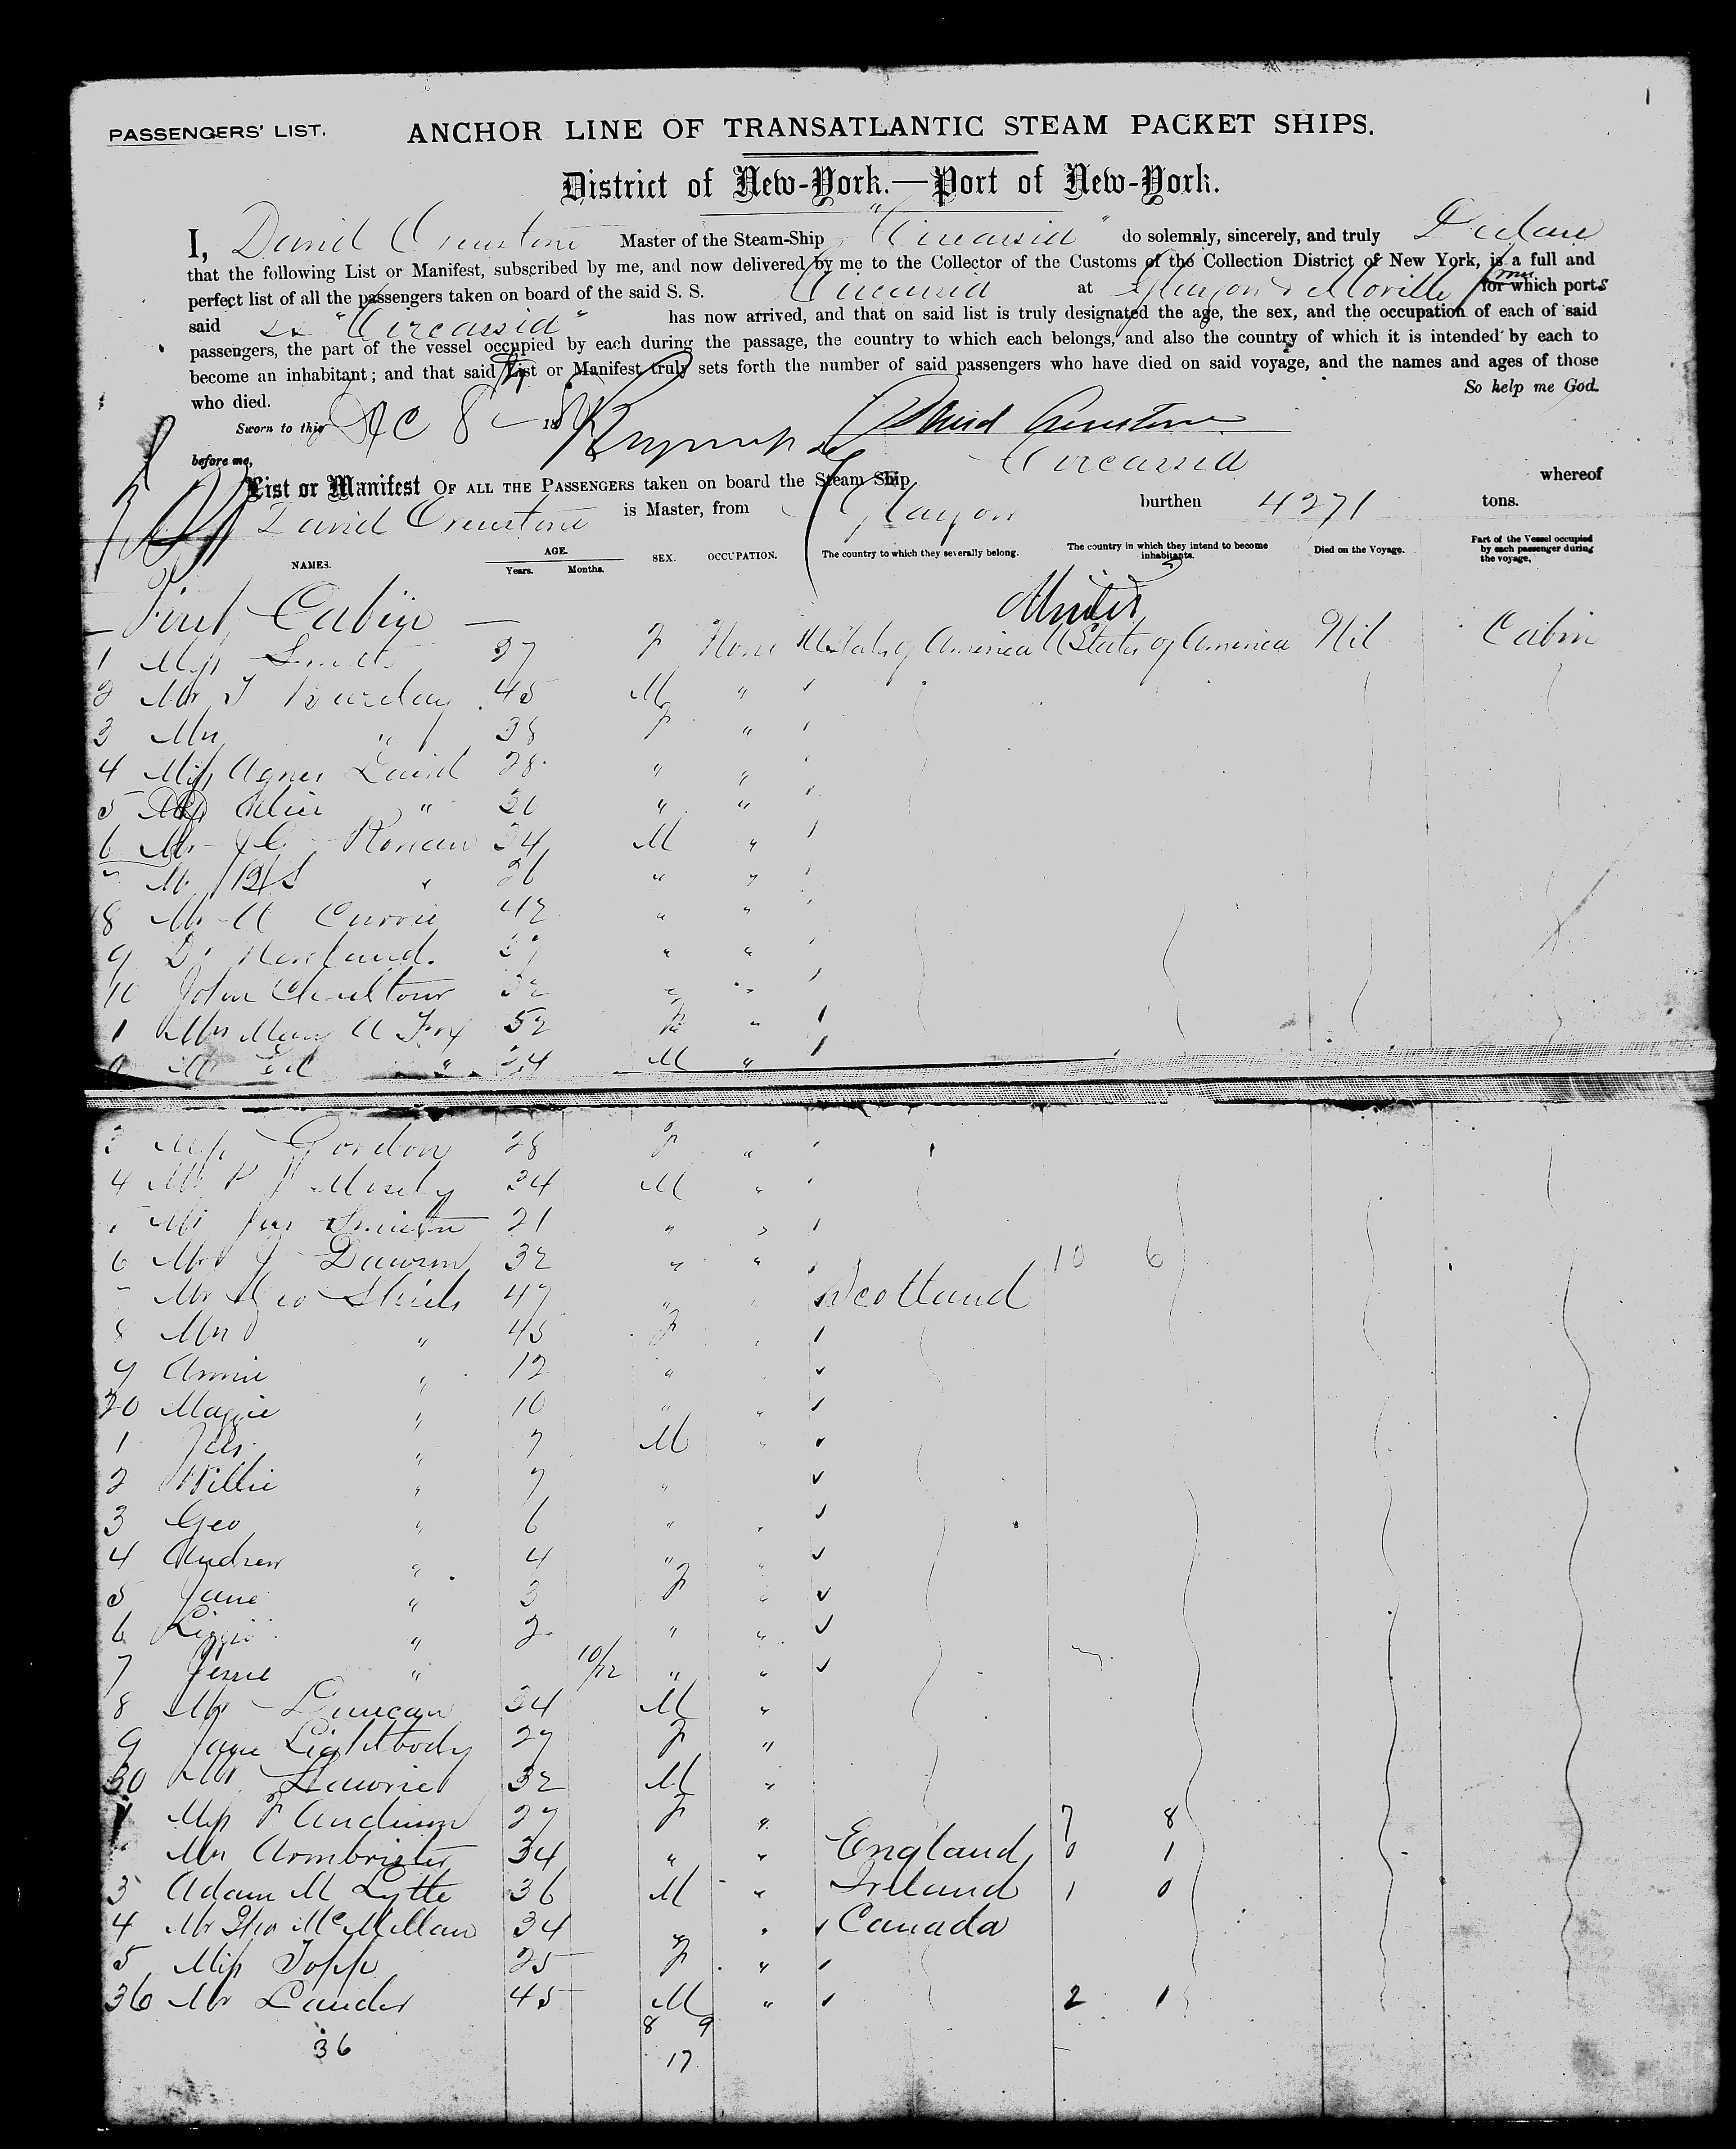 1
PASSENGERS' LIST.
ANCHOR LINE OF TRANSATLANTIC STEAM PACKET SHIPS.
District of New-York.—Port of New-York.
I, David Ormstone Master of the Steam-Ship "Circassia" do solemnly, sincerely, and truly Declare
that the following List or Manifest, subscribed by me, and now delivered by me to the Collector of the Customs of the Collection District of New York, is a full and
perfect list of all the passengers taken on board of the said S. S. Circassia at Glasgow & Moville from which ports
said ss "Circassia" has now arrived, and that on said list is truly designated the age, the sex, and the occupation of each of said
passengers, the part of the vessel occupied by each during the passage, the country to which each belongs, and also the country of which it is intended by each to
become an inhabitant; and that said List or Manifest truly sets forth the number of said passengers who have died on said voyage, and the names and ages of those
who died. So help me God.
Sworn to this Dec 8 18
before me, David Ormstone
List or Manifest OF ALL THE PASSENGERS taken on board the Steam Ship Circassia whereof
David Ormstone is Master, from Glasgow burthen 4271 tons.
NAMES. AGE. Years. Months. SEX. OCCUPATION. The country to which they severally belong. The country in which they intend to become inhabitants. Died on the Voyage. Part of the Vessel occupied by each passenger during the voyage.
First Cabin
1 Miss 27 F None U States of America U States of America Nil Cabin
2 Mr J Barclay 45 M " '
3 Mrs " 38 F " '
4 Miss Agnes Laird 28 " " '
5 Miss Alice " 20 " " '
6 Mr Ronan 34 M " '
Mr " 26 " " '
8 Mr A Currie 42 " " '
9 Dr " " '
10 John Charltour 32 " " '
1 Mrs Mary A Fox 52 F " '
Mr Ed " 24 M "
3 Miss Gordon 28 F " '
4 Mr P Mosely 34 M " '
Mr Jas 21 " " '
6 Mr J Dawson 32 " " ' 10 6
Mr Geo Shiels 47 " " Scotland
8 Mrs " 45 F " '
9 Annie " 12 " " ✓
20 Maggie " 10 " " '
1 Jas " 7 M " ✓
2 Willie " 7 " ✓
3 Geo " 6 " " ✓
4 Andrew " 4 " " ✓
5 Jane " 3 F " ✓
6 Lizzie " 2 " " ✓
7 Jessie " 10/12 " " ✓
8 Mr Duncan 34 M "
9 Jane Lightbody 27 F "
30 Mr Lawrie 32 M "
1 Miss F Anderson 27 F " 7 8
Mrs Armbrister 34 " " England 0 1
3 Adam M Lytte 36 M " Ireland 1 0
4 Mr Thos McMillan 34 " ✓ Canada
5 Miss Topp 25 F " '
36 Mr Lauder 45 M " ' 2 1
8 9
36
17